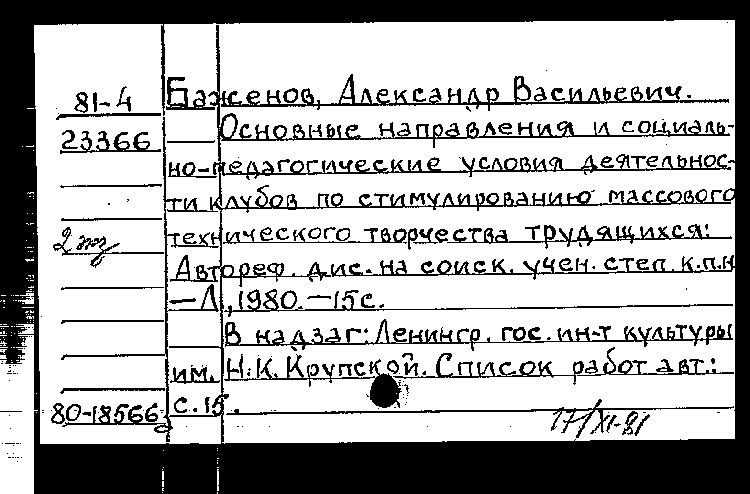 81-4 Баженов, Александр Васильевич.
23366 Основные направления и социаль-
но-педагогические условия деятельнос-
ти клубов по стимулированию массового
2 экз технического творчества трудящихся:
Автореф. дис. на соиск. учен. степ. к.п.н
— Л, 1980. — 15 с.
В надзаг: Ленингр. гос. ин-т культуры
им. Н.К. Крупской. Список работ авт.:
80-18566 с. 15.
17/XI-81